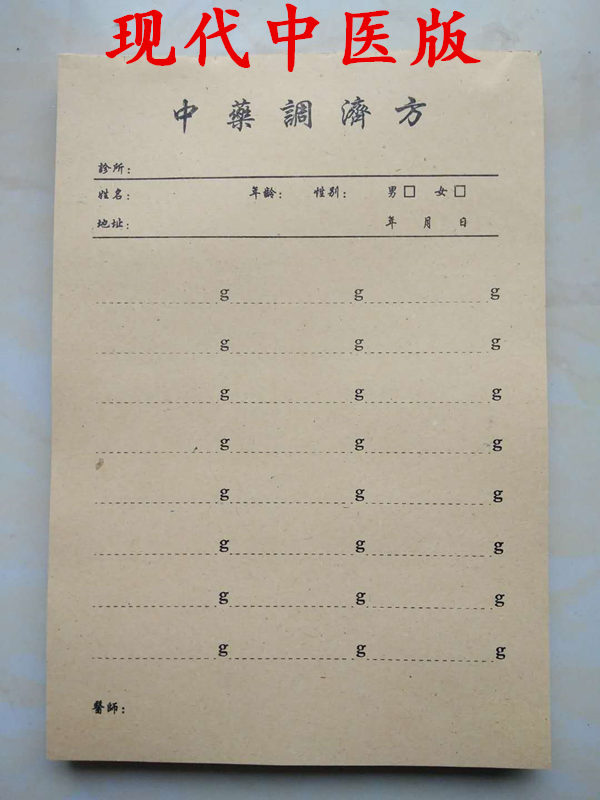 现代中医版
中藥調濟方
診所：
姓名： 年齡： 性别： 男□ 女□
地址： 年 月 日
g g g
g g g
g g g
g g g
g g g
g g g
g g g
g g g
醫師：